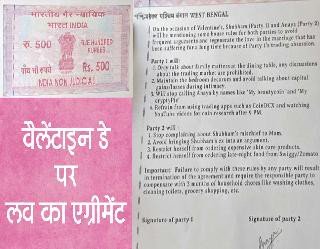 भारतीय गैर न्यायिक
भारत INDIA
रु. 500
FIVE HUNDRED
RUPEES
पाँच सौ रुपये
Rs. 500
INDIA NON JUDICIAL
वैलेंटाइन डे
पर
लव का एग्रीमेंट
পশ্চিমবঙ্গ पश्चिम बंगाल WEST BENGAL
On the occasion of Valentine's, Shubham (Party 1) and Anaya (Party 2)
will be mentioning some house rules for both parties to avoid
frequent arguments and regenerate the love in the marriage that has
been suffering for a long time because of Party 1's trading obsession.
Party 1 will:
1. Only talk about family matters at the dining table, any discussions
about the trading market are prohibited.
2. Maintain the bedroom decorum and avoid talking about capital
gains/losses during intimacy.
3. Will stop calling Anaya by names like 'My beautycoin' and 'My
cryptypie'
4. Refrain from using trading apps such as CoinDCX and watching
YouTube videos for coin research after 9 PM.
Party 2 will :
1. Stop complaining about Shubham's mischief to Mom.
2. Avoid bringing Shubham's ex into an argument.
3. Restrict herself from ordering expensive skin care products.
4. Restrict herself from ordering late-night food from Swiggy/Zomato
Important: Failure to comply with these rules by any party will result
in termination of the agreement and require the responsible party to
compensate with 3 months of household chores like washing clothes,
cleaning toilets, grocery shopping, etc.
Signature of party 1
Signature of party 2